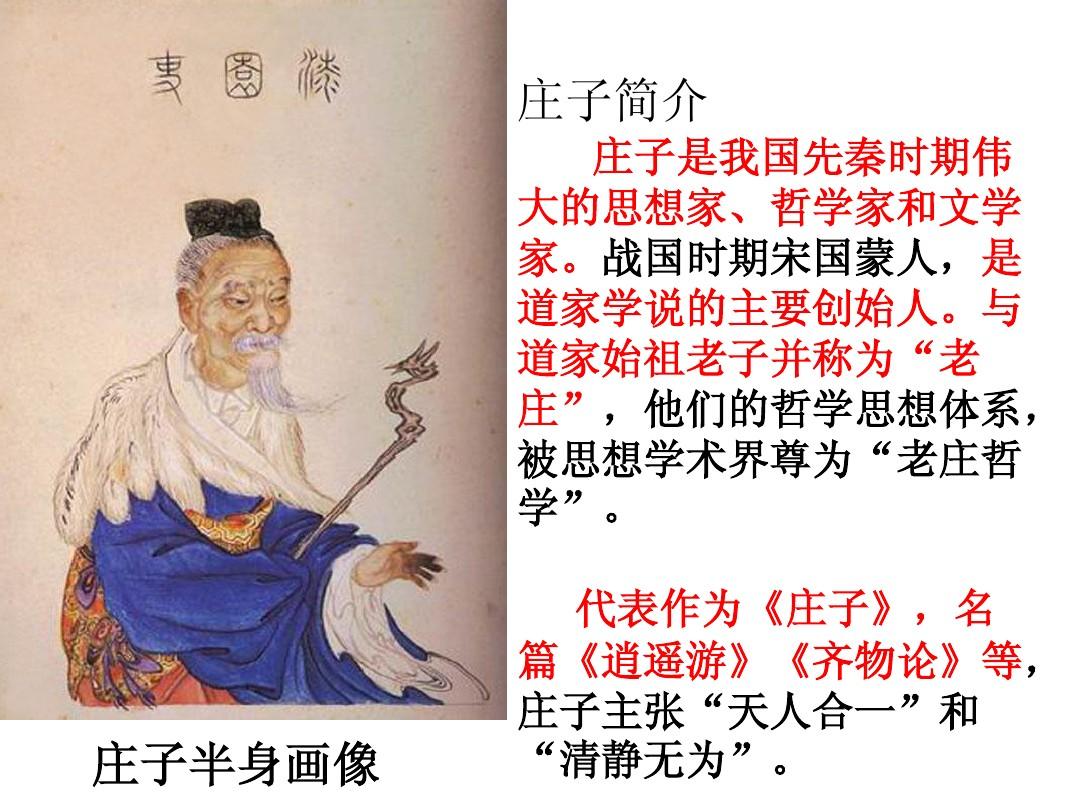 漆園吏
庄子简介
庄子是我国先秦时期伟
大的思想家、哲学家和文学
家。战国时期宋国蒙人，是
道家学说的主要创始人。与
道家始祖老子并称为“老
庄”，他们的哲学思想体系，
被思想学术界尊为“老庄哲
学”。
代表作为《庄子》，名
篇《逍遥游》《齐物论》等，
庄子主张“天人合一”和
“清静无为”。
庄子半身画像